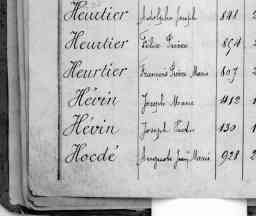 Heurtier Adolphe Joseph 848
Heurtier Félix Pierre 854
Heurtier François Pierre Marie 807
Hévin Joseph Marie 412
Hévin Joseph 130
Hocdé Auguste Jean Marie 928